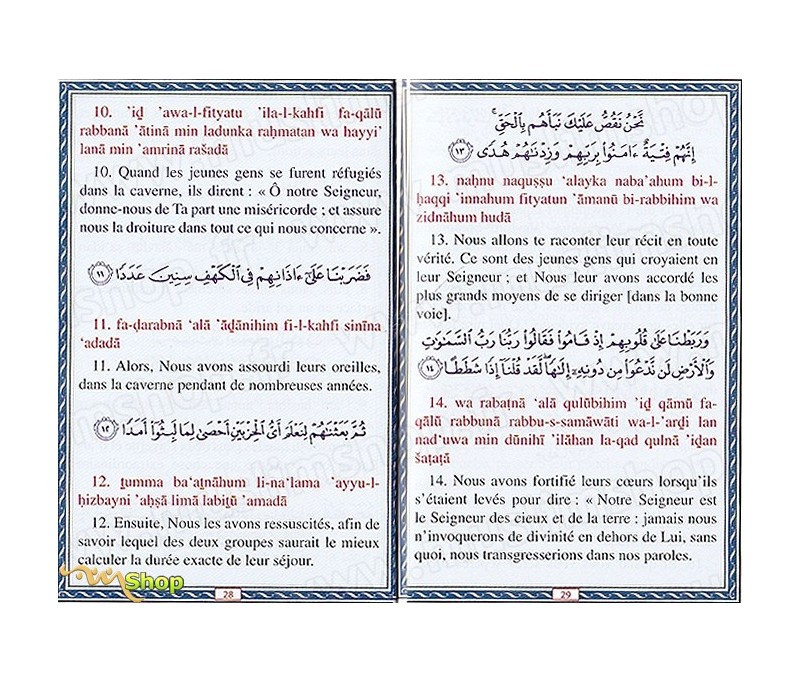 10. 'iḏ 'awa-l-fityatu 'ila-l-kahfi fa-qālū
rabbanā 'ātinā min ladunka raḥmatan wa hayyi'
lanā min 'amrinā rašadā
10. Quand les jeunes gens se furent réfugiés
dans la caverne, ils dirent : « Ô notre Seigneur,
donne-nous de Ta part une miséricorde ; et assure
nous la droiture dans tout ce qui nous concerne ».
فَضَرَبْنَا عَلَىٰٓ ءَاذَانِهِمْ فِى ٱلْكَهْفِ سِنِينَ عَدَدًا ١١
11. fa-ḍarabnā 'alā 'āḏānihim fi-l-kahfi sinīna
'adadā
11. Alors, Nous avons assourdi leurs oreilles,
dans la caverne pendant de nombreuses années.
ثُمَّ بَعَثْنَٰهُمْ لِنَعْلَمَ أَىُّ ٱلْحِزْبَيْنِ أَحْصَىٰ لِمَا لَبِثُوٓا۟ أَمَدًا ١٢
12. ṯumma ba'aṯnāhum li-na'lama 'ayyu-l-
ḥizbayni 'aḥṣā limā labiṯū 'amadā
12. Ensuite, Nous les avons ressuscités, afin de
savoir lequel des deux groupes saurait le mieux
calculer la durée exacte de leur séjour.
Shop
28
نَّحْنُ نَقُصُّ عَلَيْكَ نَبَأَهُم بِٱلْحَقِّ ۚ
إِنَّهُمْ فِتْيَةٌ ءَامَنُوا۟ بِرَبِّهِمْ وَزِدْنَٰهُمْ هُدًى ١٣
13. naḥnu naquṣṣu 'alayka naba'ahum bi-l-
ḥaqqi 'innahum fityatun 'āmanū bi-rabbihim wa
zidnāhum hudā
13. Nous allons te raconter leur récit en toute
vérité. Ce sont des jeunes gens qui croyaient en
leur Seigneur ; et Nous leur avons accordé les
plus grands moyens de se diriger [dans la bonne
voie].
وَرَبَطْنَا عَلَىٰ قُلُوبِهِمْ إِذْ قَامُوا۟ فَقَالُوا۟ رَبُّنَا رَبُّ ٱلسَّمَٰوَٰتِ
وَٱلْأَرْضِ لَن نَّدْعُوَا۟ مِن دُونِهِۦٓ إِلَٰهًا ۖ لَّقَدْ قُلْنَآ إِذًا شَطَطًا ١٤
14. wa rabaṭnā 'alā qulūbihim 'iḏ qāmū fa-
qālū rabbunā rabbu-s-samāwāti wa-l-'arḍi lan
nad'uwa min dūnihī 'ilāhan la-qad qulnā 'iḏan
šaṭaṭā
14. Nous avons fortifié leurs cœurs lorsqu'ils
s'étaient levés pour dire : « Notre Seigneur est
le Seigneur des cieux et de la terre : jamais nous
n'invoquerons de divinité en dehors de Lui, sans
quoi, nous transgresserions dans nos paroles.
29